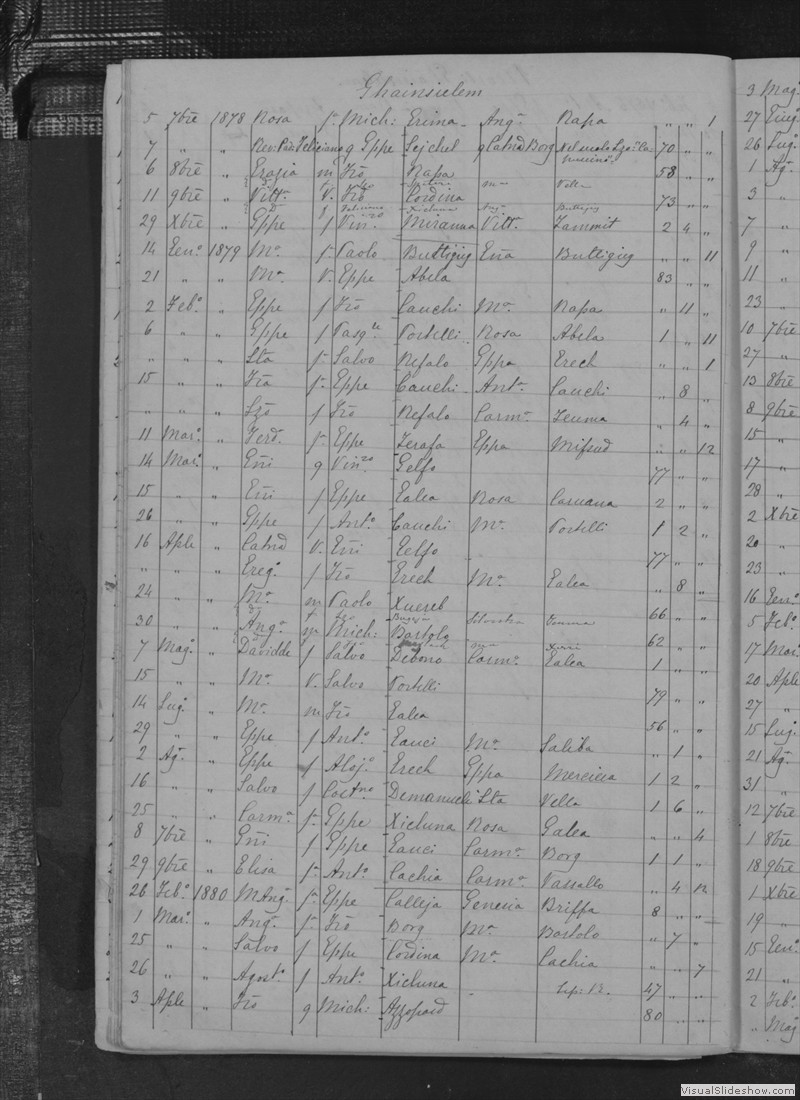 Ghainsielem
5 7bre 1878 Rosa f. Mich: Ang. Rapa " " 1
7 " " Rev: Pad: Feliciano q Gppe Sejchel q Catnd Borg 70 " "
6 8bre " m Fro Rapa 58 " "
Vella
11 9bre " Vitt. V. Fro Cordina 73 " "
Buttigieg
29 Xbre " Gppe f Vin.zo Vitt. Zammit 2 4 "
14 Gen.o 1879 M.a f. Paolo Buttigieg Buttigieg " " 11
21 " " M.a V. Gppe Abela 83 " "
2 Feb.o " Gppe f Fro Cauchi M.a Rapa " 11 "
6 " " Gppe f Pasq.le Portelli Rosa Abela 1 " 11
" " " Sta f. Salvo Refalo Gppa Grech " " 1
15 " " Fra f. Gppe Cauchi Ant.a Cauchi " 8 "
" " " f Fro Refalo Carm.a " 4 "
11 Mar.o " Ferd. f. Gppe Zerafa Gppa Mifsud " " 12
14 Mar.o " Gni q Vin.zo 77 " "
15 " " Gni f Gppe Galea Rosa Caruana 2 " "
26 " " Gppe f Ant.o Cauchi M.a Portelli 1 2 "
16 Aple " Catnd V. Gni 77 " "
" " " Greg.o f Fro Grech M.a Galea " 8 "
24 " " M.a m Paolo Xuereb 66 " "
30 " " Ang.a m Mich: Bartolo 62 " "
7 Mag. " Davidde f Salvo Debono Carm.a Galea 1 " "
15 " " M.a V. Salvo Portelli 79 " "
14 Lug. " M.a m Fro Galea 56 " "
29 " " Gppe f Ant.o Gauci M.a Saliba " 1 "
2 Ag. " Gppe f Aloj.o Grech Gppa Mercieca 1 2 "
16 " " Salvo f Caet.no Demanuele Sta Vella 1 6 "
25 " " Carm.a f. Gppe Xicluna Rosa Galea " " 4
8 7bre " Gni f Gppe Gauci Carm.a Borg 1 1 "
29 9bre " Elisa f. Ant.o Cachia Carm.a Vassallo " 4 12
26 Feb.o 1880 M Ang. f. Gppe Calleja Briffa 8 " "
1 Mar.o " Ang. f. Fro Borg M.a Bartolo " 7 "
25 " " Salvo f Gppe Cordina M.a Cachia " " 7
26 " " Agost.o f Ant.o Xicluna 47 " "
3 Aple " Fro q Mich: Azzopard 80 " "
3 Mag.
27 Giug.
26 Lug.
1 Ag.
3 "
7 "
9 "
11 "
23 "
10 7bre
27 "
13 8bre
8 9bre
15 "
17 "
28 "
2 Xbre
20 "
23 "
16 Gen.o
5 Feb.o
17 Mar.o
20 Aple
27 "
15 Lug.
21 Ag.
31 "
12 7bre
1 8bre
18 9bre
1 Xbre
19 "
15 Gen.o
21 "
2 Feb.o
" Mag.
VisualSlideshow.com